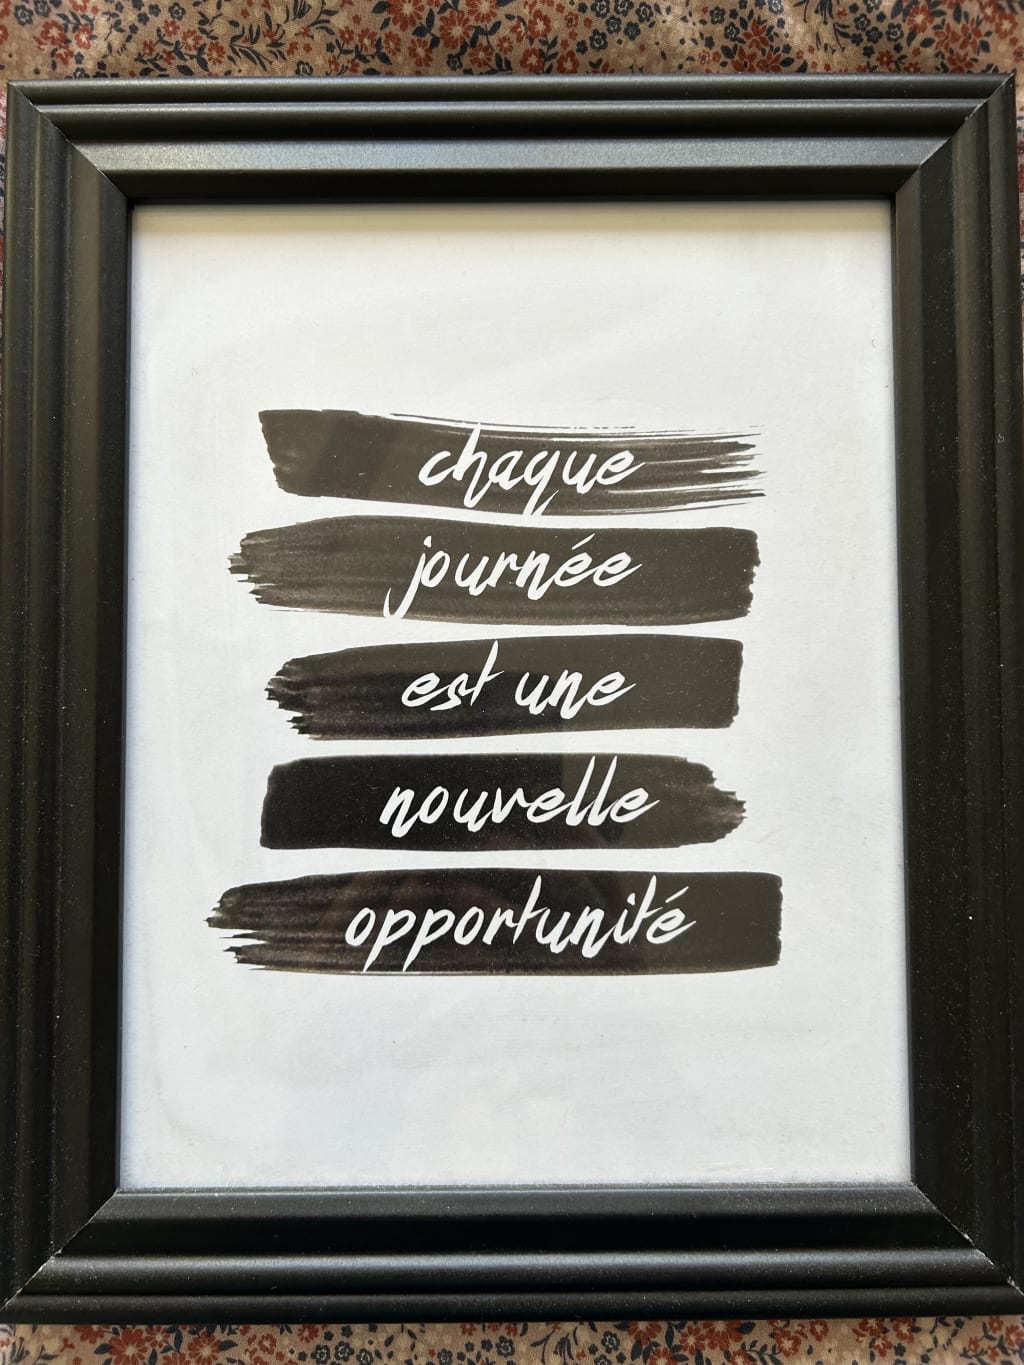 chaque
journée
est une
nouvelle
opportunité